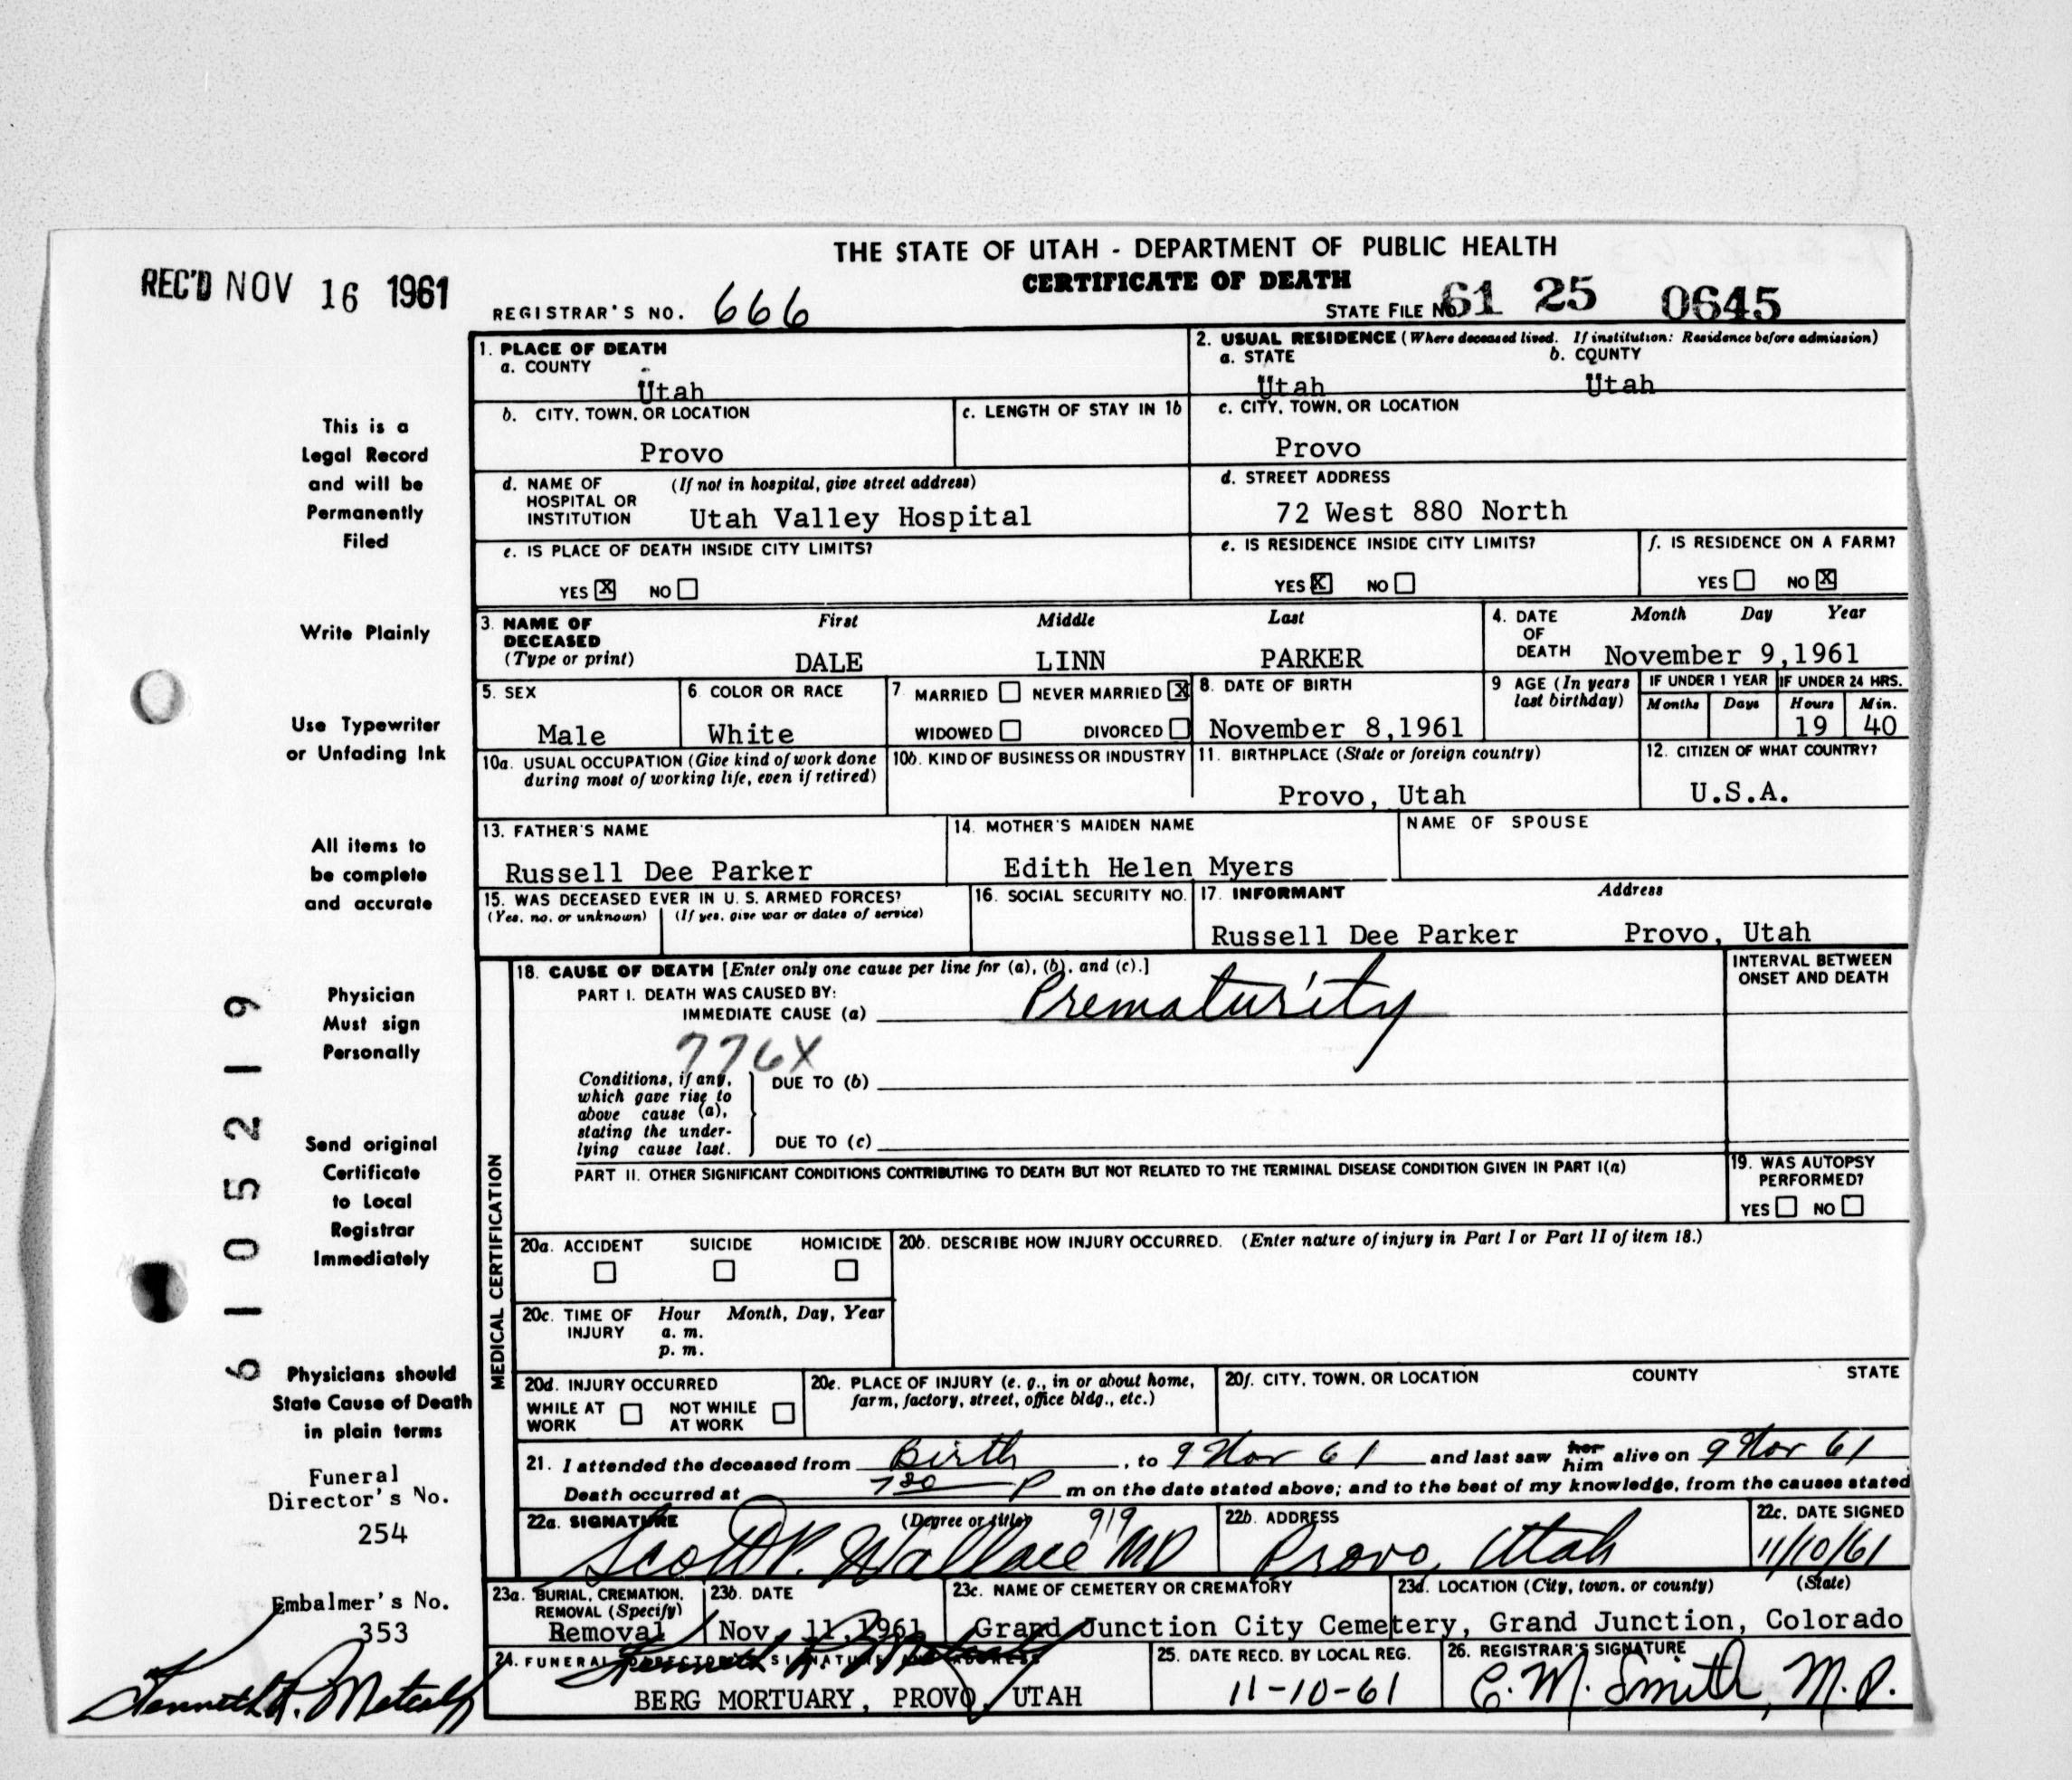 THE STATE OF UTAH - DEPARTMENT OF PUBLIC HEALTH
CERTIFICATE OF DEATH
REC'D NOV 16 1961
REGISTRAR'S NO. 666
STATE FILE NO. 61 25 0645
This is a
Legal Record
and will be
Permanently
Filed
Write Plainly
Use Typewriter
or Unfading Ink
All items to
be complete
and accurate
Physician
Must sign
Personally
Send original
Certificate
to Local
Registrar
Immediately
Physicians should
State Cause of Death
in plain terms
Funeral
Director's No.
254
Embalmer's No.
353
Kenneth R. Metcalf
6105219
1. PLACE OF DEATH
a. COUNTY
Utah
2. USUAL RESIDENCE (Where deceased lived. If institution: Residence before admission)
a. STATE b. COUNTY
Utah Utah
b. CITY, TOWN, OR LOCATION
Provo
c. LENGTH OF STAY IN 1b
c. CITY, TOWN, OR LOCATION
Provo
d. NAME OF (If not in hospital, give street address)
HOSPITAL OR
INSTITUTION Utah Valley Hospital
d. STREET ADDRESS
72 West 880 North
e. IS PLACE OF DEATH INSIDE CITY LIMITS?
YES X NO
e. IS RESIDENCE INSIDE CITY LIMITS?
YES X NO
f. IS RESIDENCE ON A FARM?
YES NO X
3. NAME OF First Middle Last
DECEASED
(Type or print) DALE LINN PARKER
4. DATE Month Day Year
OF
DEATH November 9,1961
5. SEX
Male
6 COLOR OR RACE
White
7. MARRIED NEVER MARRIED X
WIDOWED DIVORCED
8. DATE OF BIRTH
November 8,1961
9 AGE (In years
last birthday)
IF UNDER 1 YEAR
Months Days
IF UNDER 24 HRS.
Hours Min.
19 40
10a. USUAL OCCUPATION (Give kind of work done
during most of working life, even if retired)
10b. KIND OF BUSINESS OR INDUSTRY
11. BIRTHPLACE (State or foreign country)
Provo, Utah
12. CITIZEN OF WHAT COUNTRY?
U.S.A.
13. FATHER'S NAME
Russell Dee Parker
14. MOTHER'S MAIDEN NAME
Edith Helen Myers
NAME OF SPOUSE
15. WAS DECEASED EVER IN U. S. ARMED FORCES?
(Yes, no, or unknown) (If yes, give war or dates of service)
16. SOCIAL SECURITY NO.
17. INFORMANT Address
Russell Dee Parker Provo, Utah
MEDICAL CERTIFICATION
18. CAUSE OF DEATH [Enter only one cause per line for (a), (b), and (c).]
PART I. DEATH WAS CAUSED BY:
IMMEDIATE CAUSE (a) Prematurity
INTERVAL BETWEEN
ONSET AND DEATH
776X
Conditions, if any,
which gave rise to
above cause (a),
stating the under-
lying cause last.
DUE TO (b)
DUE TO (c)
PART II. OTHER SIGNIFICANT CONDITIONS CONTRIBUTING TO DEATH BUT NOT RELATED TO THE TERMINAL DISEASE CONDITION GIVEN IN PART I(a)
19. WAS AUTOPSY
PERFORMED?
YES NO
20a. ACCIDENT SUICIDE HOMICIDE
20b. DESCRIBE HOW INJURY OCCURRED. (Enter nature of injury in Part I or Part II of item 18.)
20c. TIME OF Hour Month, Day, Year
INJURY a. m.
p. m.
20d. INJURY OCCURRED
WHILE AT NOT WHILE
WORK AT WORK
20e. PLACE OF INJURY (e. g., in or about home,
farm, factory, street, office bldg., etc.)
20f. CITY, TOWN, OR LOCATION COUNTY STATE
21. I attended the deceased from Birth, to 9 Nov 61 and last saw her him alive on 9 Nov 61
Death occurred at 730 P m on the date stated above; and to the best of my knowledge, from the causes stated
22a. SIGNATURE (Degree or title) 919
Scott P. Wallace MD
22b. ADDRESS
Provo, Utah
22c. DATE SIGNED
11/10/61
23a. BURIAL, CREMATION,
REMOVAL (Specify)
Removal
23b. DATE
Nov. 11,1961
23c. NAME OF CEMETERY OR CREMATORY
23d. LOCATION (City, town, or county) (State)
Grand Junction City Cemetery, Grand Junction, Colorado
24. FUNERAL DIRECTOR'S SIGNATURE AND ADDRESS
Kenneth R. Metcalf
BERG MORTUARY, PROVO, UTAH
25. DATE RECD. BY LOCAL REG.
11-10-61
26. REGISTRAR'S SIGNATURE
C. M. Smith, M.D.